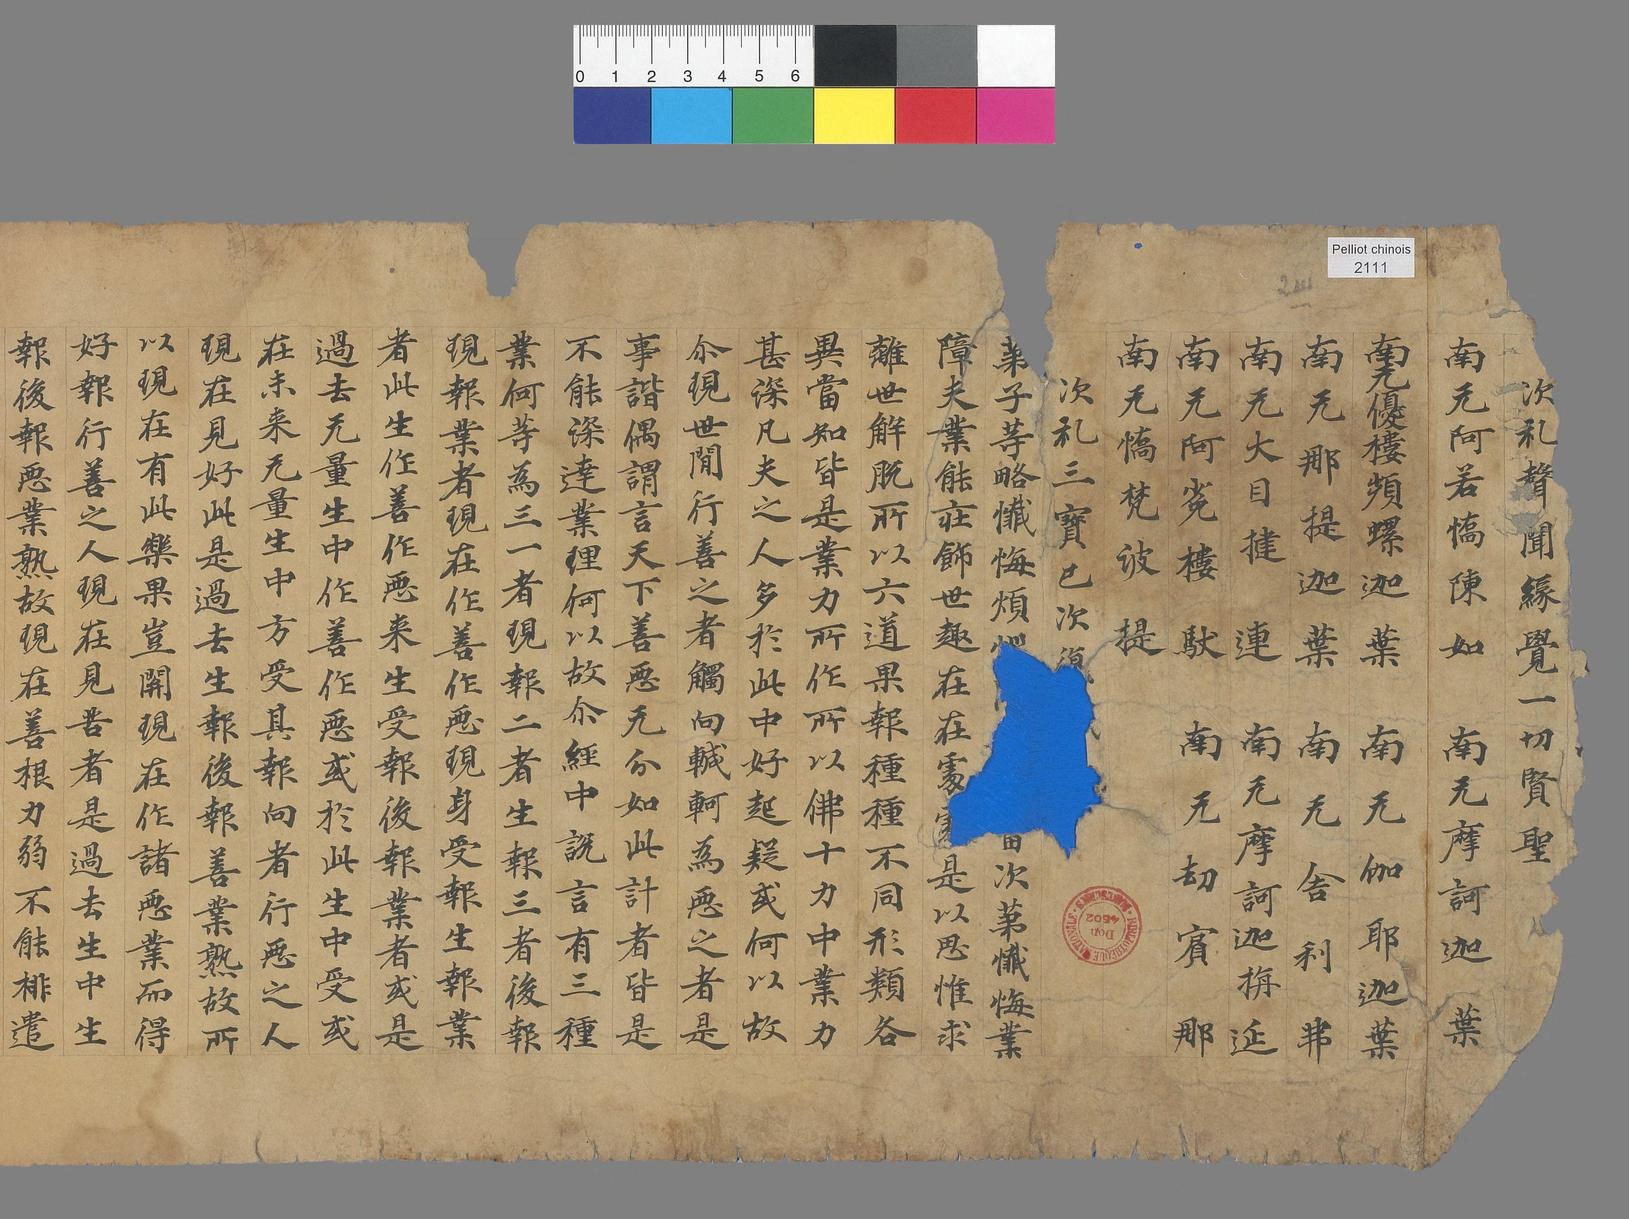 次礼聲聞緣覺一切賢聖
南无阿若憍陳如 南无摩訶迦葉
南无優樓頻螺迦葉 南无伽耶迦葉
南无那提迦葉 南无舍利弗
南无大目揵連 南无摩訶迦旃延
南无阿㝹樓馱 南无劫賓那
南无憍梵波提
次礼三寶已次復
弟子等略懺悔煩 次第懺悔業
障夫業能莊飾世趣在在處處是以思惟求
離世解脫所以六道果報種種不同形類各
異當知皆是業力所作所以佛十力中業力
甚深凡夫之人多於此中好起疑或何以故
尒現世間行善之者觸向轗軻為惡之者是
事諧偶謂言天下善惡无分如此計者皆是
不能深達業理何以故尒經中說言有三種
業何等為三一者現報二者生報三者後報
現報業者現在作善作惡現身受報生報業
者此生作善作惡来生受報後報業者或是
過去无量生中作善作惡或於此生中受或
在未来无量生中方受其報向者行惡之人
現在見好此是過去生報後報善業熟故所
以現在有此樂果豈關現在作諸惡業而得
好報行善之人現在見苦者是過去生中生
報後報惡業熟故現在善根力弱不能排遣
Pelliot chinois
2111
0 1 2 3 4 5 6
BIBLIOTHÈQUE NATIONALE MANUSCRITS
Don
4502